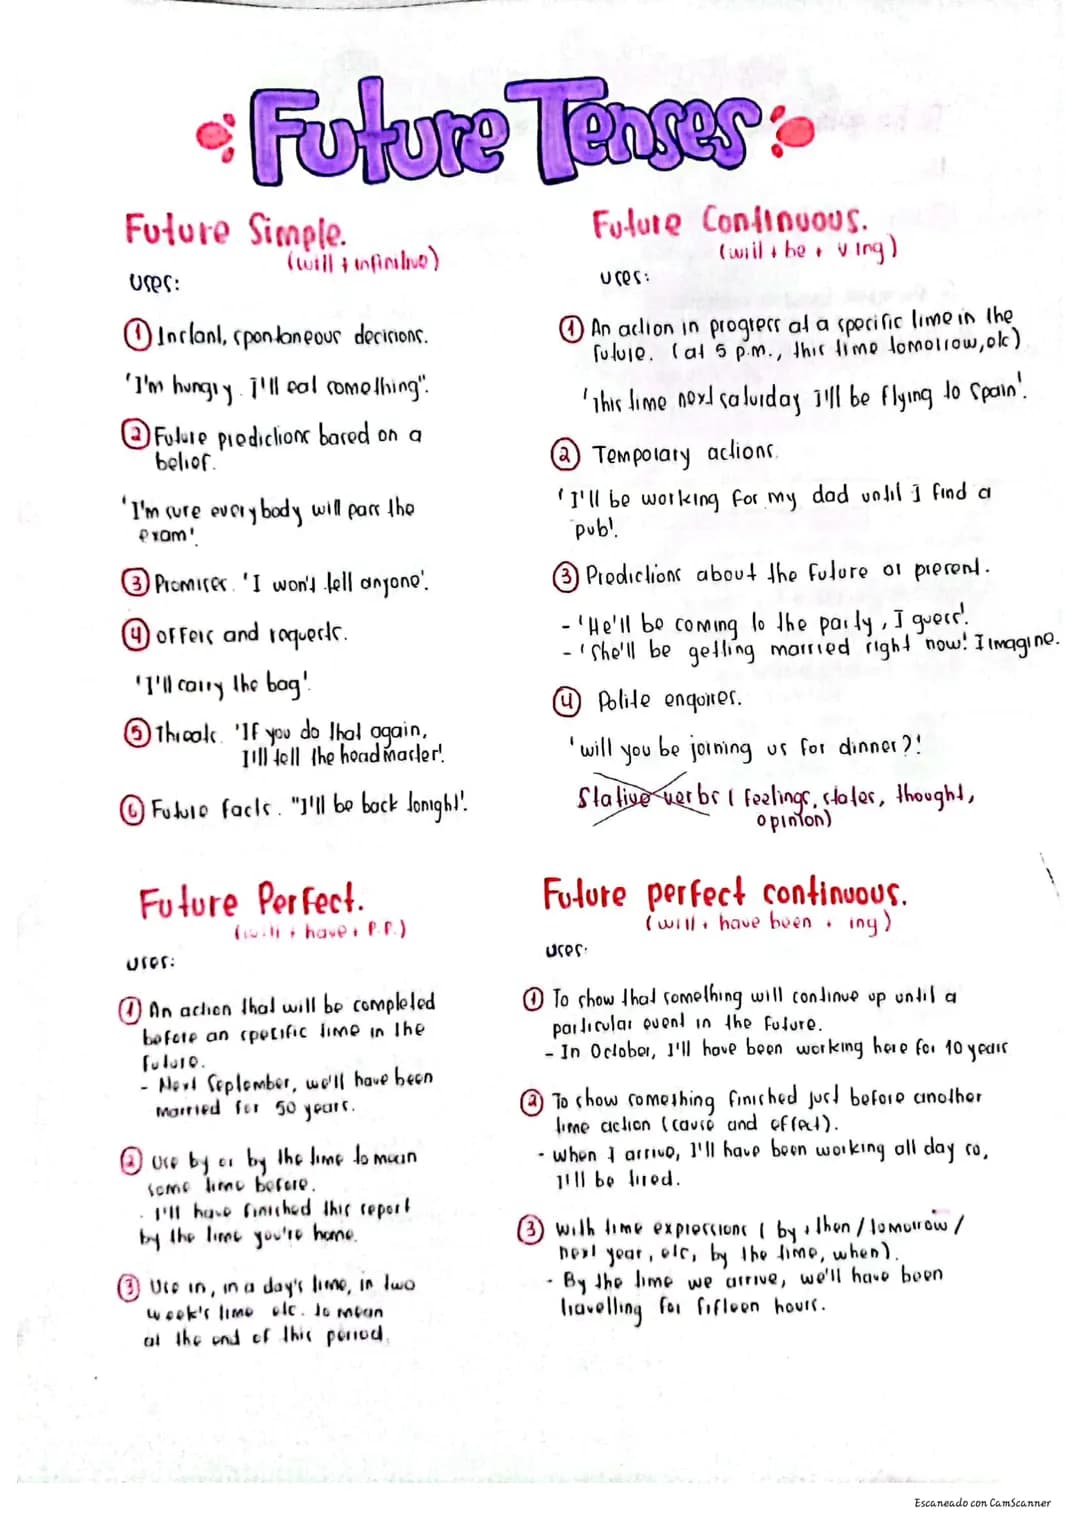 Future Tenses
Future Simple.
(will + infinitive)
uses:
① Instant, spontaneous decisions.
'I'm hungry. I'll eat something".
② Future predictions based on a
belief.
'I'm sure everybody will pass the
exam'.
③ Promises. 'I won't tell anyone'.
④ offers and requests.
'I'll carry the bag'.
⑤ Threats. 'If you do that again,
I'll tell the headmaster'.
⑥ Future facts. "I'll be back tonight'.
Future Continuous.
(will + be + v ing)
uses:
① An action in progress at a specific time in the
future. (at 5 p.m., this time tomorrow, etc)
'This time next saturday I'll be flying to Spain'.
② Temporary actions.
'I'll be working for my dad until I find a
pub'.
③ Predictions about the future or present.
- 'He'll be coming to the party, I guess'.
- 'She'll be getting married right now! I imagine.
④ Polite enquires.
'will you be joining us for dinner?'
Stative verbs (feelings, states, thought,
opinion)
Future Perfect.
(will + have + P.P.)
uses:
① An action that will be completed
before an specific time in the
future.
- Next September, we'll have been
married for 50 years.
② Use by or by the time to mean
some time before.
. I'll have finished this report
by the time you're home.
③ Use in, in a day's time, in two
week's time etc. to mean
at the end of this period.
Future perfect continuous.
(will + have been + ing)
uses:
① To show that something will continue up until a
particular event in the future.
- In October, I'll have been working here for 10 years
② To show something finished just before another
time action (cause and effect).
- when I arrive, I'll have been working all day so,
I'll be tired.
③ with time expressions ( by + then / tomorrow /
next year, etc, by the time, when).
- By the time we arrive, we'll have been
travelling for fifteen hours.
Escaneado con CamScanner